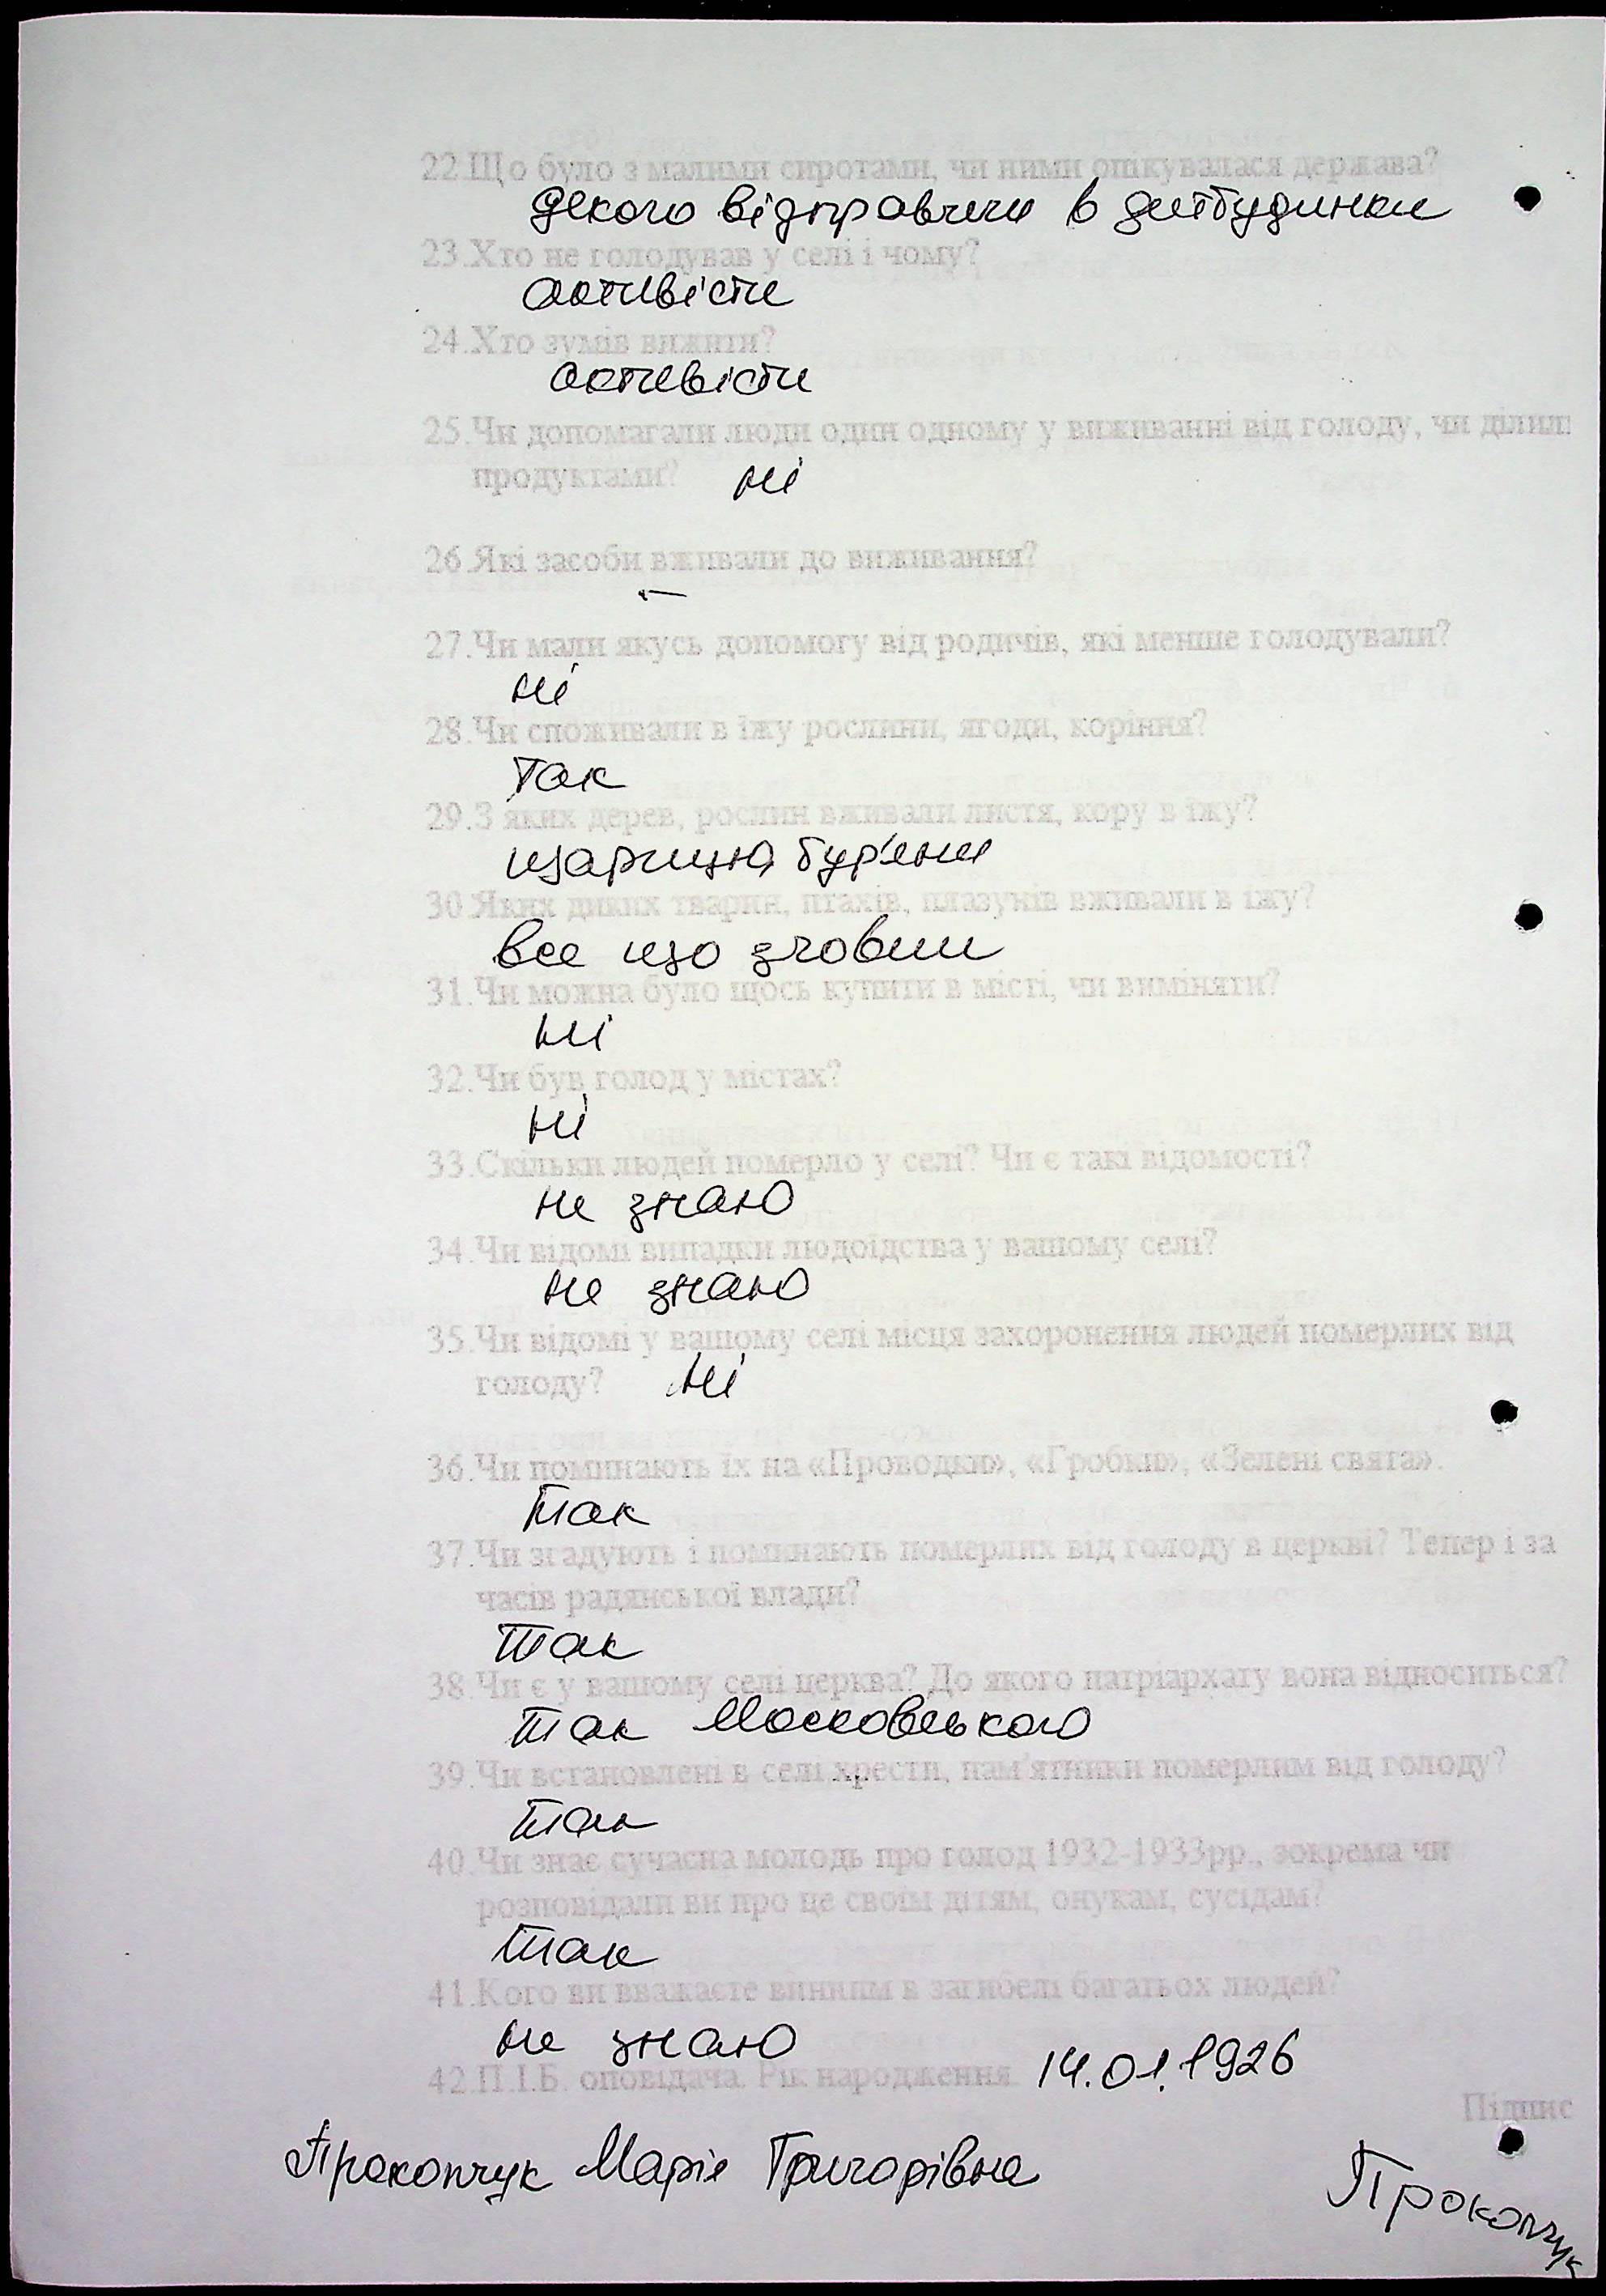 22.Що було з малими сиротами, чи ними опікувалася держава?
декого відправили в дитбудинки
23.Хто не голодував у селі і чому?
активісти
24.Хто зумів вижити?
активісти
25.Чи допомагали люди один одному у виживанні від голоду, чи ділил
продуктами? ні
26.Які засоби вживали до виживання?
—
27.Чи мали якусь допомогу від родичів, які менше голодували?
ні
28.Чи споживали в їжу рослини, ягоди, коріння?
так
29.З яких дерев, рослин вживали листя, кору в їжу?
щарицю, бур'яни
30.Яких диких тварин, птахів, плазунів вживали в їжу?
все що зловили
31.Чи можна було щось купити в місті, чи виміняти?
ні
32.Чи був голод у містах?
ні
33.Скільки людей померло у селі? Чи є такі відомості?
не знаю
34.Чи відомі випадки людоїдства у вашому селі?
не знаю
35.Чи відомі у вашому селі місця захоронення людей померлих від
голоду? ні
36.Чи поминають їх на «Проводки», «Гробки», «Зелені свята».
так
37.Чи згадують і поминають померлих від голоду в церкві? Тепер і за
часів радянської влади?
так
38.Чи є у вашому селі церква? До якого патріархату вона відноситься?
так Московського
39.Чи встановлені в селі хрести, пам'ятники померлим від голоду?
так
40.Чи знає сучасна молодь про голод 1932-1933рр., зокрема чи
розповідали ви про це своїм дітям, онукам, сусідам?
так
41.Кого ви вважаєте винним в загибелі багатьох людей?
не знаю
42.П.І.Б. оповідача. Рік народження. 14.01.1926
Підпис
Прокопчук Марія Григорівна
Прокопчук